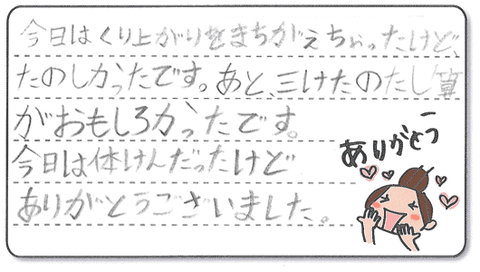 今日はくり上がりをまちがえちゃったけど、
たのしかったです。あと、三けたのたし算
がおもしろかったです。
今日は体けんだったけど
ありがとうございました。
ありがとう